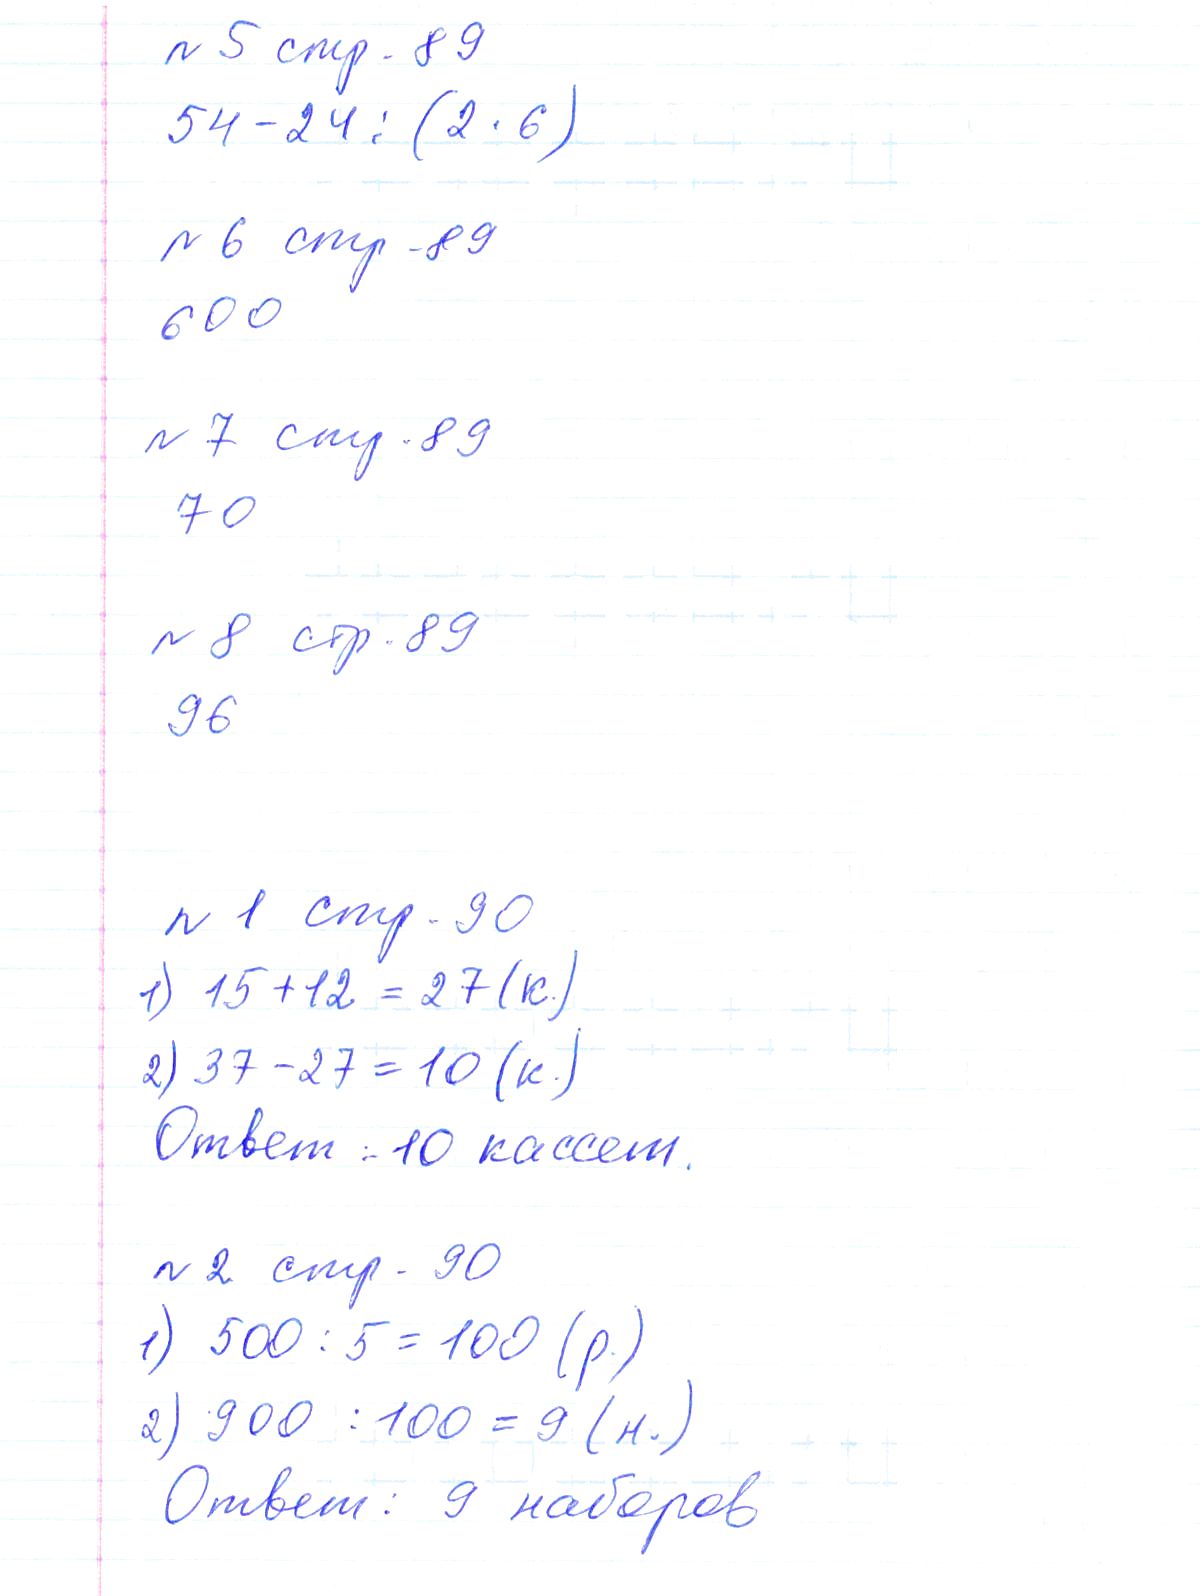 № 5 стр - 89
54 - 24 : (2 · 6)
№ 6 стр - 89
600
№ 7 стр - 89
70
№ 8 стр - 89
96
№ 1 стр - 90
1) 15 + 12 = 27 (к.)
2) 37 - 27 = 10 (к.)
Ответ : 10 кассет.
№ 2 стр - 90
1) 500 : 5 = 100 (р.)
2) 900 : 100 = 9 (н.)
Ответ : 9 наборов